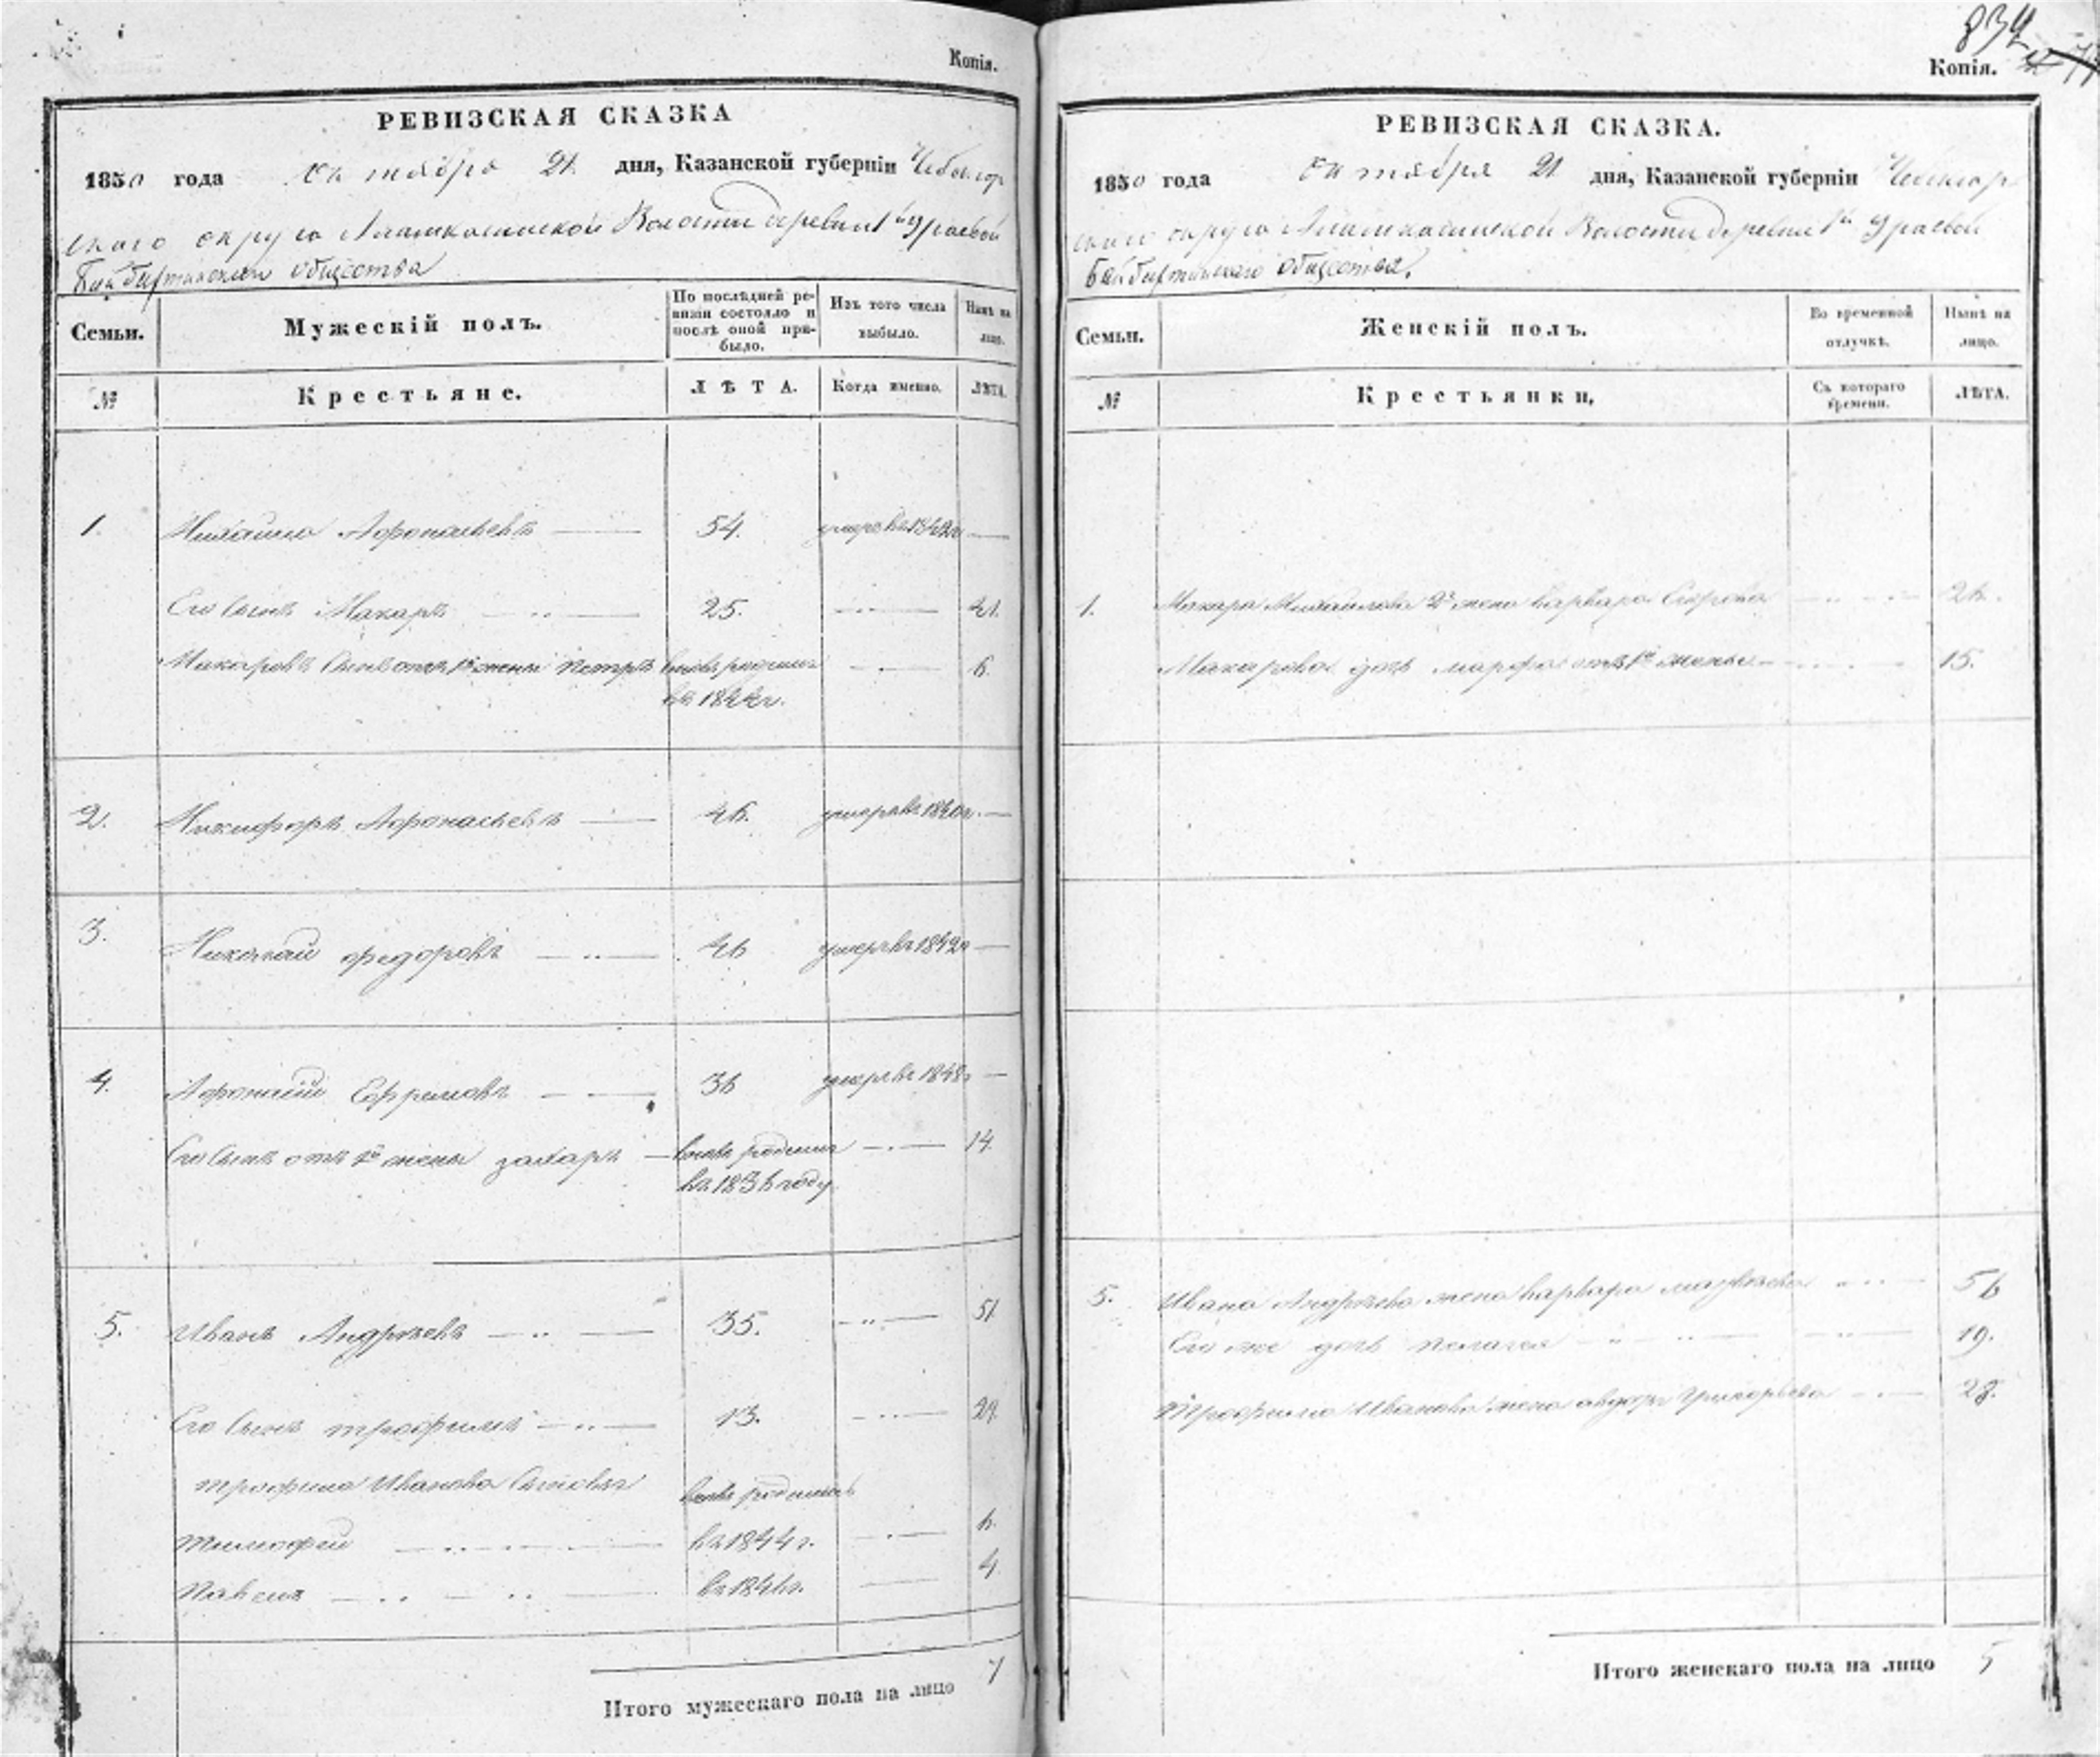 Копія.
РЕВИЗСКАЯ СКАЗКА
1850 года октября 21 дня, Казанской губерніи Чебоксар
скаго округа Волости деревни 1й Ураевой
общества
Семьи. Мужескій полъ. По послѣдней ревизіи состояло и послѣ оной прибыло. Изъ того числа выбыло. Нынѣ на лицо.
№ Крестьяне. ЛѢТА. Когда именно. ЛѢТА.
1. Михайло Афонасьевъ 54. умеръ въ
Его сынъ Макаръ 25. 41.
Макаровъ сынъ отъ 1й жены Петръ вновь родился 6.
въ 1844 г.
2. Никифоръ Афонасьевъ 46. умеръ въ 1840 г.
3. Николай Федоровъ 46 умеръ въ 1842 г.
4. Афонасій Ефремовъ 36 умеръ въ 1848 г.
Его сынъ отъ 1й жены Захаръ вновь родился 14.
въ 1836 году
5. Иванъ Андрѣевъ 35. 51.
Его сынъ Трофимъ 13. 29.
Трофима Иванова сыновья вновь родились
Тимофей въ 1844 г. 6.
Павелъ въ 1846 г. 4
Итого мужескаго пола на лицо 7
834
Копія.
РЕВИЗСКАЯ СКАЗКА.
1850 года октября 21 дня, Казанской губерніи
скаго округа Волости деревни 1й Ураевой
общества.
Семьи. Женскій полъ. Во временной отлучкѣ. Нынѣ на лицо.
№ Крестьянки. Съ котораго времени. ЛѢТА.
1. Макара Михайлова 2я жена Варвара 26.
Макарова дочь Марфа отъ 1й жены 15.
5. Ивана Андрѣева жена Варвара 56
Его же дочь Пелагея 19.
Трофима Иванова жена Григорьева 28.
Итого женскаго пола на лицо 5